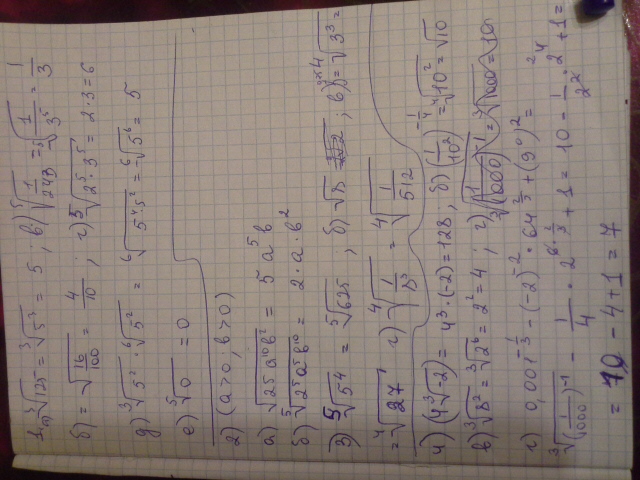 1. а) ∛125 = ∛5³ = 5 ; в) ⁵√(1/243) = ⁵√(1/3⁵) = 1/3
б) = √(16/100) = 4/10 ; г) ⁵√(2⁵·3⁵) = 2·3 = 6
д) ∛5² · ⁶√5² = ⁶√(5⁴·5²) = ⁶√5⁶ = 5
е) ⁵√0 = 0
2) (a>0; b>0)
а) √(25a¹⁰b²) = 5a⁵b
б) ⁵√(2⁵a⁵b¹⁰) = 2·a·b²
3) ⁵√5⁴ = ⁵√625 ; б) √8 ; в) = ⁴√3³ =
= ⁴√27 г) ⁴√(1/8³) = ⁴√(1/512)
4) (4∛-2) = 4³·(-2) = 128 ; б) (1/10²)^(-1/4) = ⁴√10² = √10
в) ∛8² = ∛2⁶ = 2² = 4 ; г) = ∛1000 = 10
г) 0,001^(-1/3) - (-2)^(-2) · 64^(2/3) + (9⁰)² =
∛((1/1000)^(-1)) - 1/4 · 2^(6·2/3) + 1 = 10 - 1/2² · 2⁴ + 1 =
= 10 - 4 + 1 = 7